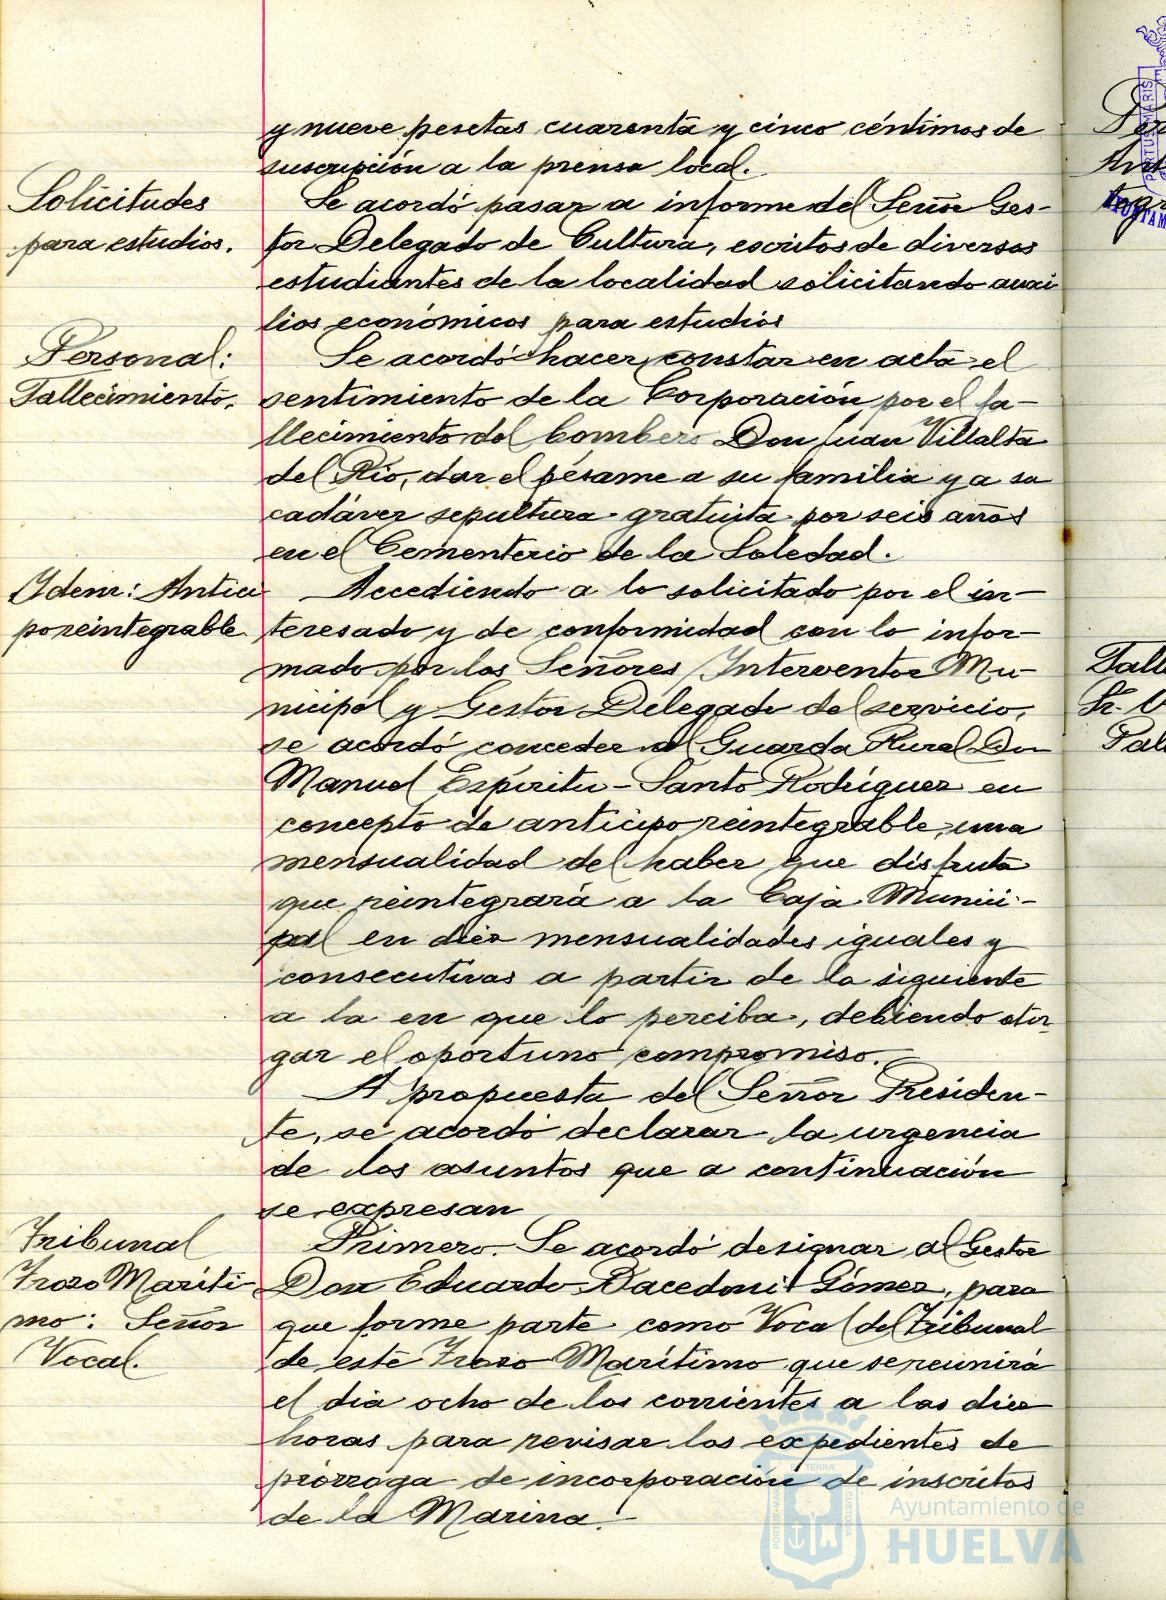 y nueve pesetas cuarenta y cinco céntimos de
suscripción a la prensa local.
Solicitudes
para estudios.
Se acordó pasar a informe del Señor Ges-
tor Delegado de Cultura, escritos de diversos
estudiantes de la localidad solicitando auxi
lios económicos para estudios
Personal:
Fallecimiento.
Se acordó hacer constar en acta el
sentimiento de la Corporación por el fa-
llecimiento del bombero Don Juan Villalta
del Río, dar el pésame a su familia y a su
cadáver sepultura gratuita por seis años
en el Cementerio de la Soledad.
Idem: Antici
po reintegrable.
Accediendo a lo solicitado por el in-
teresado y de conformidad con lo infor-
mado por los Señores Interventor Mu-
nicipal y Gestor Delegado del servicio,
se acordó conceder al Guarda Rural Don
Manuel Espíritu-Santo Rodríguez en
concepto de anticipo reintegrable, una
mensualidad del haber que disfruta
que reintegrará a la Caja Munici-
pal en diez mensualidades iguales y
consecutivas a partir de la siguiente
a la en que lo perciba, debiendo otor
gar el oportuno compromiso.
A propuesta del Señor Presiden-
te, se acordó declarar la urgencia
de los asuntos que a continuación
se expresan
Tribunal
Trozo Maríti
mo: Señor
Vocal.
Primero. Se acordó designar al Gestor
Don Eduardo Gómez, para
que forme parte como Vocal del Tribunal
de este Trozo Marítimo que se reunirá
el día ocho de los corrientes a las diez
horas para revisar los expedientes de
prórroga de incorporación de inscritos
de la Marina.
Ayuntamiento de
HUELVA